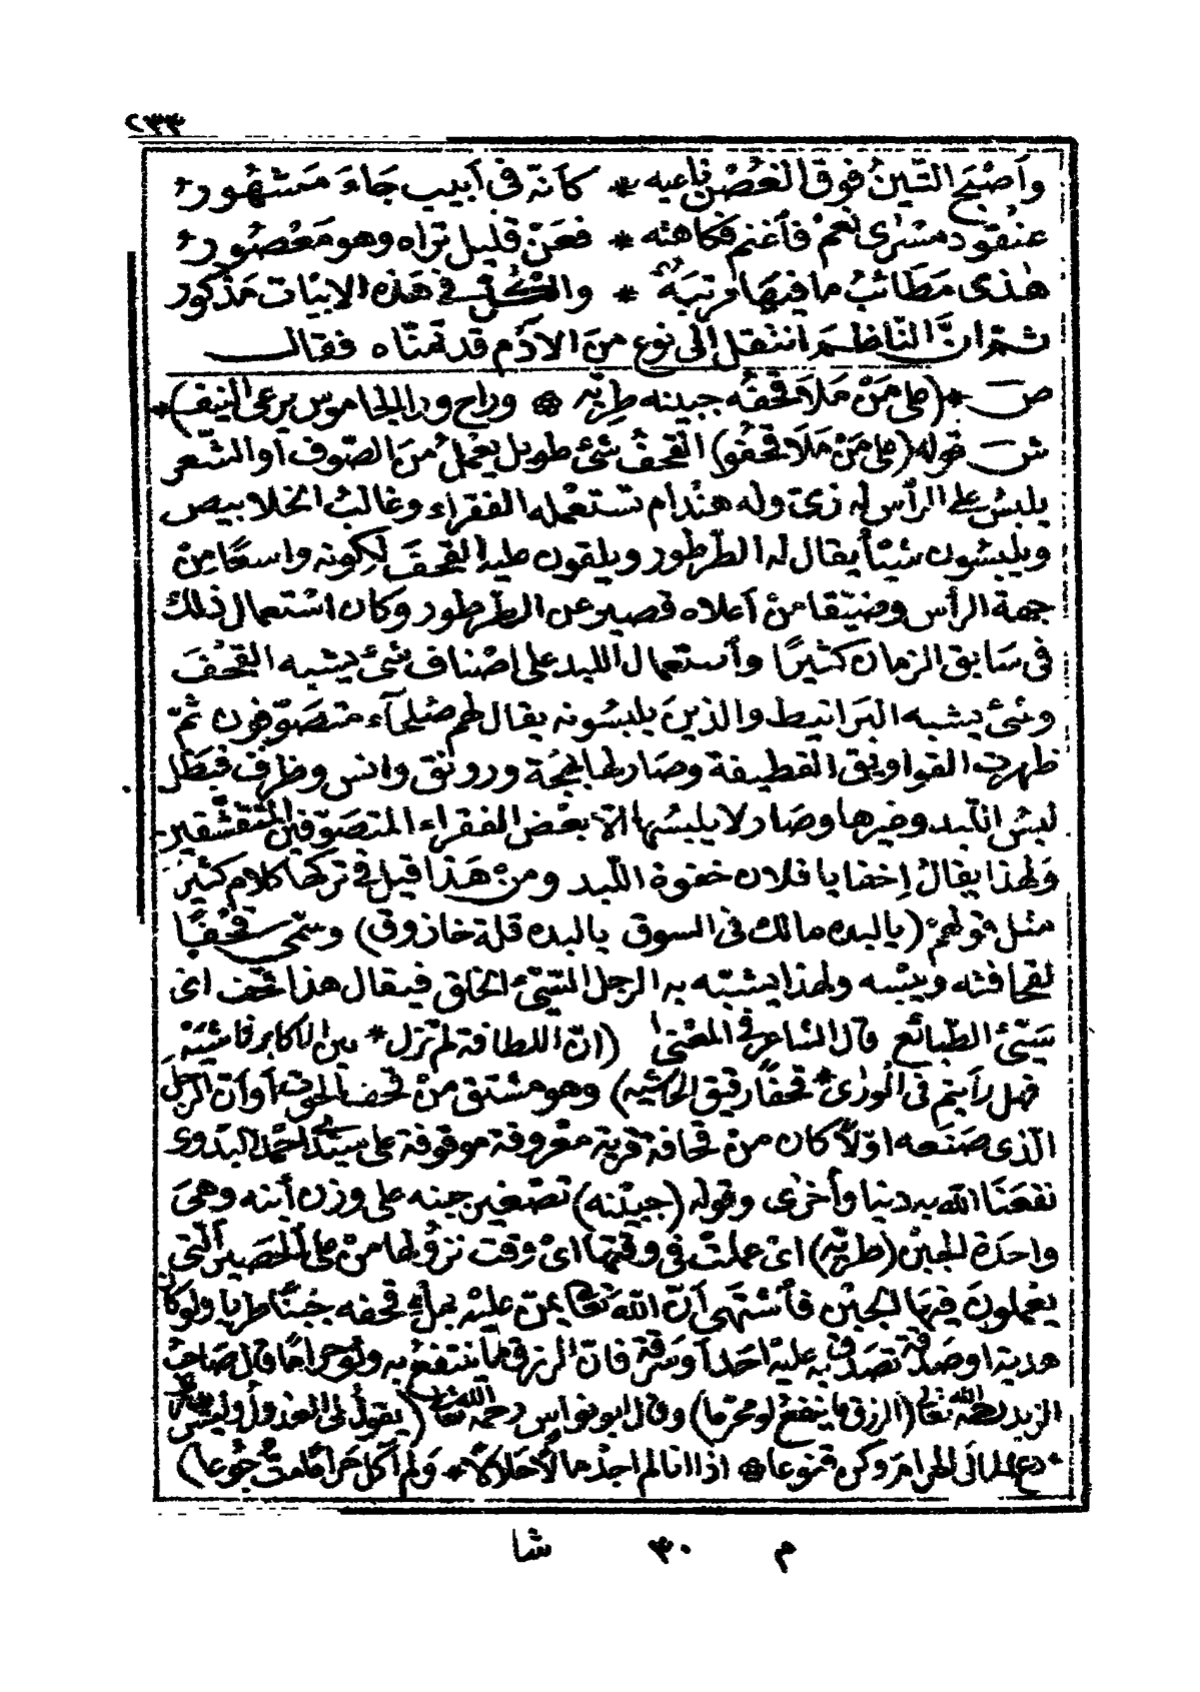 ٢٣٣
وأصبح التين فوق الغصن ناعيه * كأنه فى أبيب جاء مشهور
عنقود مسرى نعم فأغنم فكاهته * فعن قليل تراه وهو معصور
هذى مطائب ما فيها مرتبة * والكل فى هذه الابيات مذكور
ثم ان الناظم انتقل الى نوع من الادم قد تمناه فقال
ص * (على من ملا قحفه جبينه طريه * وراح ورا الجاموس يرعى النيف) *
ش قوله (على من ملا قحفو) القحف شئ طويل يعمل من الصوف أو الشعر
يلبس على الرأس له زى وله هندام تستعمله الفقراء وغالب الخلابيص
ويلبسون شيئا يقال له الطرطور ويلقون عليه القحف لكونه واسعا من
جهة الرأس وضيقا من أعلاه قصير عن الطرطور وكان استعمال ذلك
فى سابق الزمان كثيرا وأستعمال اللبد على اصناف شئ يشبه القحف
وشئ يشبه البرانيط والذين يلبسونه يقال لهم صلحآء متصوفون ثم
ظهرت القواويق القطيفة وصار لها بهجة ورونق وانس وظرف فبطل
لبس اللبد وغيرها وصار لا يلبسها الا بعض الفقراء المتصوفين المتقشفين
ولهذا يقال إخفا يا فلان خفوة اللبد ومن هذا قيل فى تركها كلام كثير
مثل قولهم (يالبده مالك فى السوق يالبده قلة خازوق) وسمى قحفا
لقحافته ويبسه ولهذا يشبه به الرجل السئ الخلق فيقال هذا قحف اى
سيئ الطبائع قال الشاعر فى المعنى (ان اللطافة لم تزل * بين الاكابر فاشيه
فهل رأيتم فى الورى * قحفا رقيق الحاشيه) وهو مشتق من قحف الحوف أو أن الرجل
الذى صنعه اولا كان من قحافة قرية معروفة موقوفة على سيدى احمد البدوى
نفعنا الله به دنيا وأخرى وقوله (جبينه) تصغير جبنه على وزن أبنه وهى
واحدة الجبن (طريه) اى عملت فى وقتها اى وقت نزولها من على الحصير التى
يعملون فيها الجبن فأشتهى أن الله تعالى يمن عليه بملء قحفه جبنا طريا ولو كان
هدية او صدقة تصدق به عليه احدا وسرقة فان الرزق ما ينتفع به ولو حراما قال صاحب
الزبد رحمه الله تعالى (الرزق ما ينفع لو محرما) وقال ابو نواس رحمه الله تعالى (يقول لى العذول وليس
* دع المال الحرام وكن قنوعا * اذا انا لم اجد مالا حلالا * ولم آكل حراما مت جوعا)
م ٣٠ شا